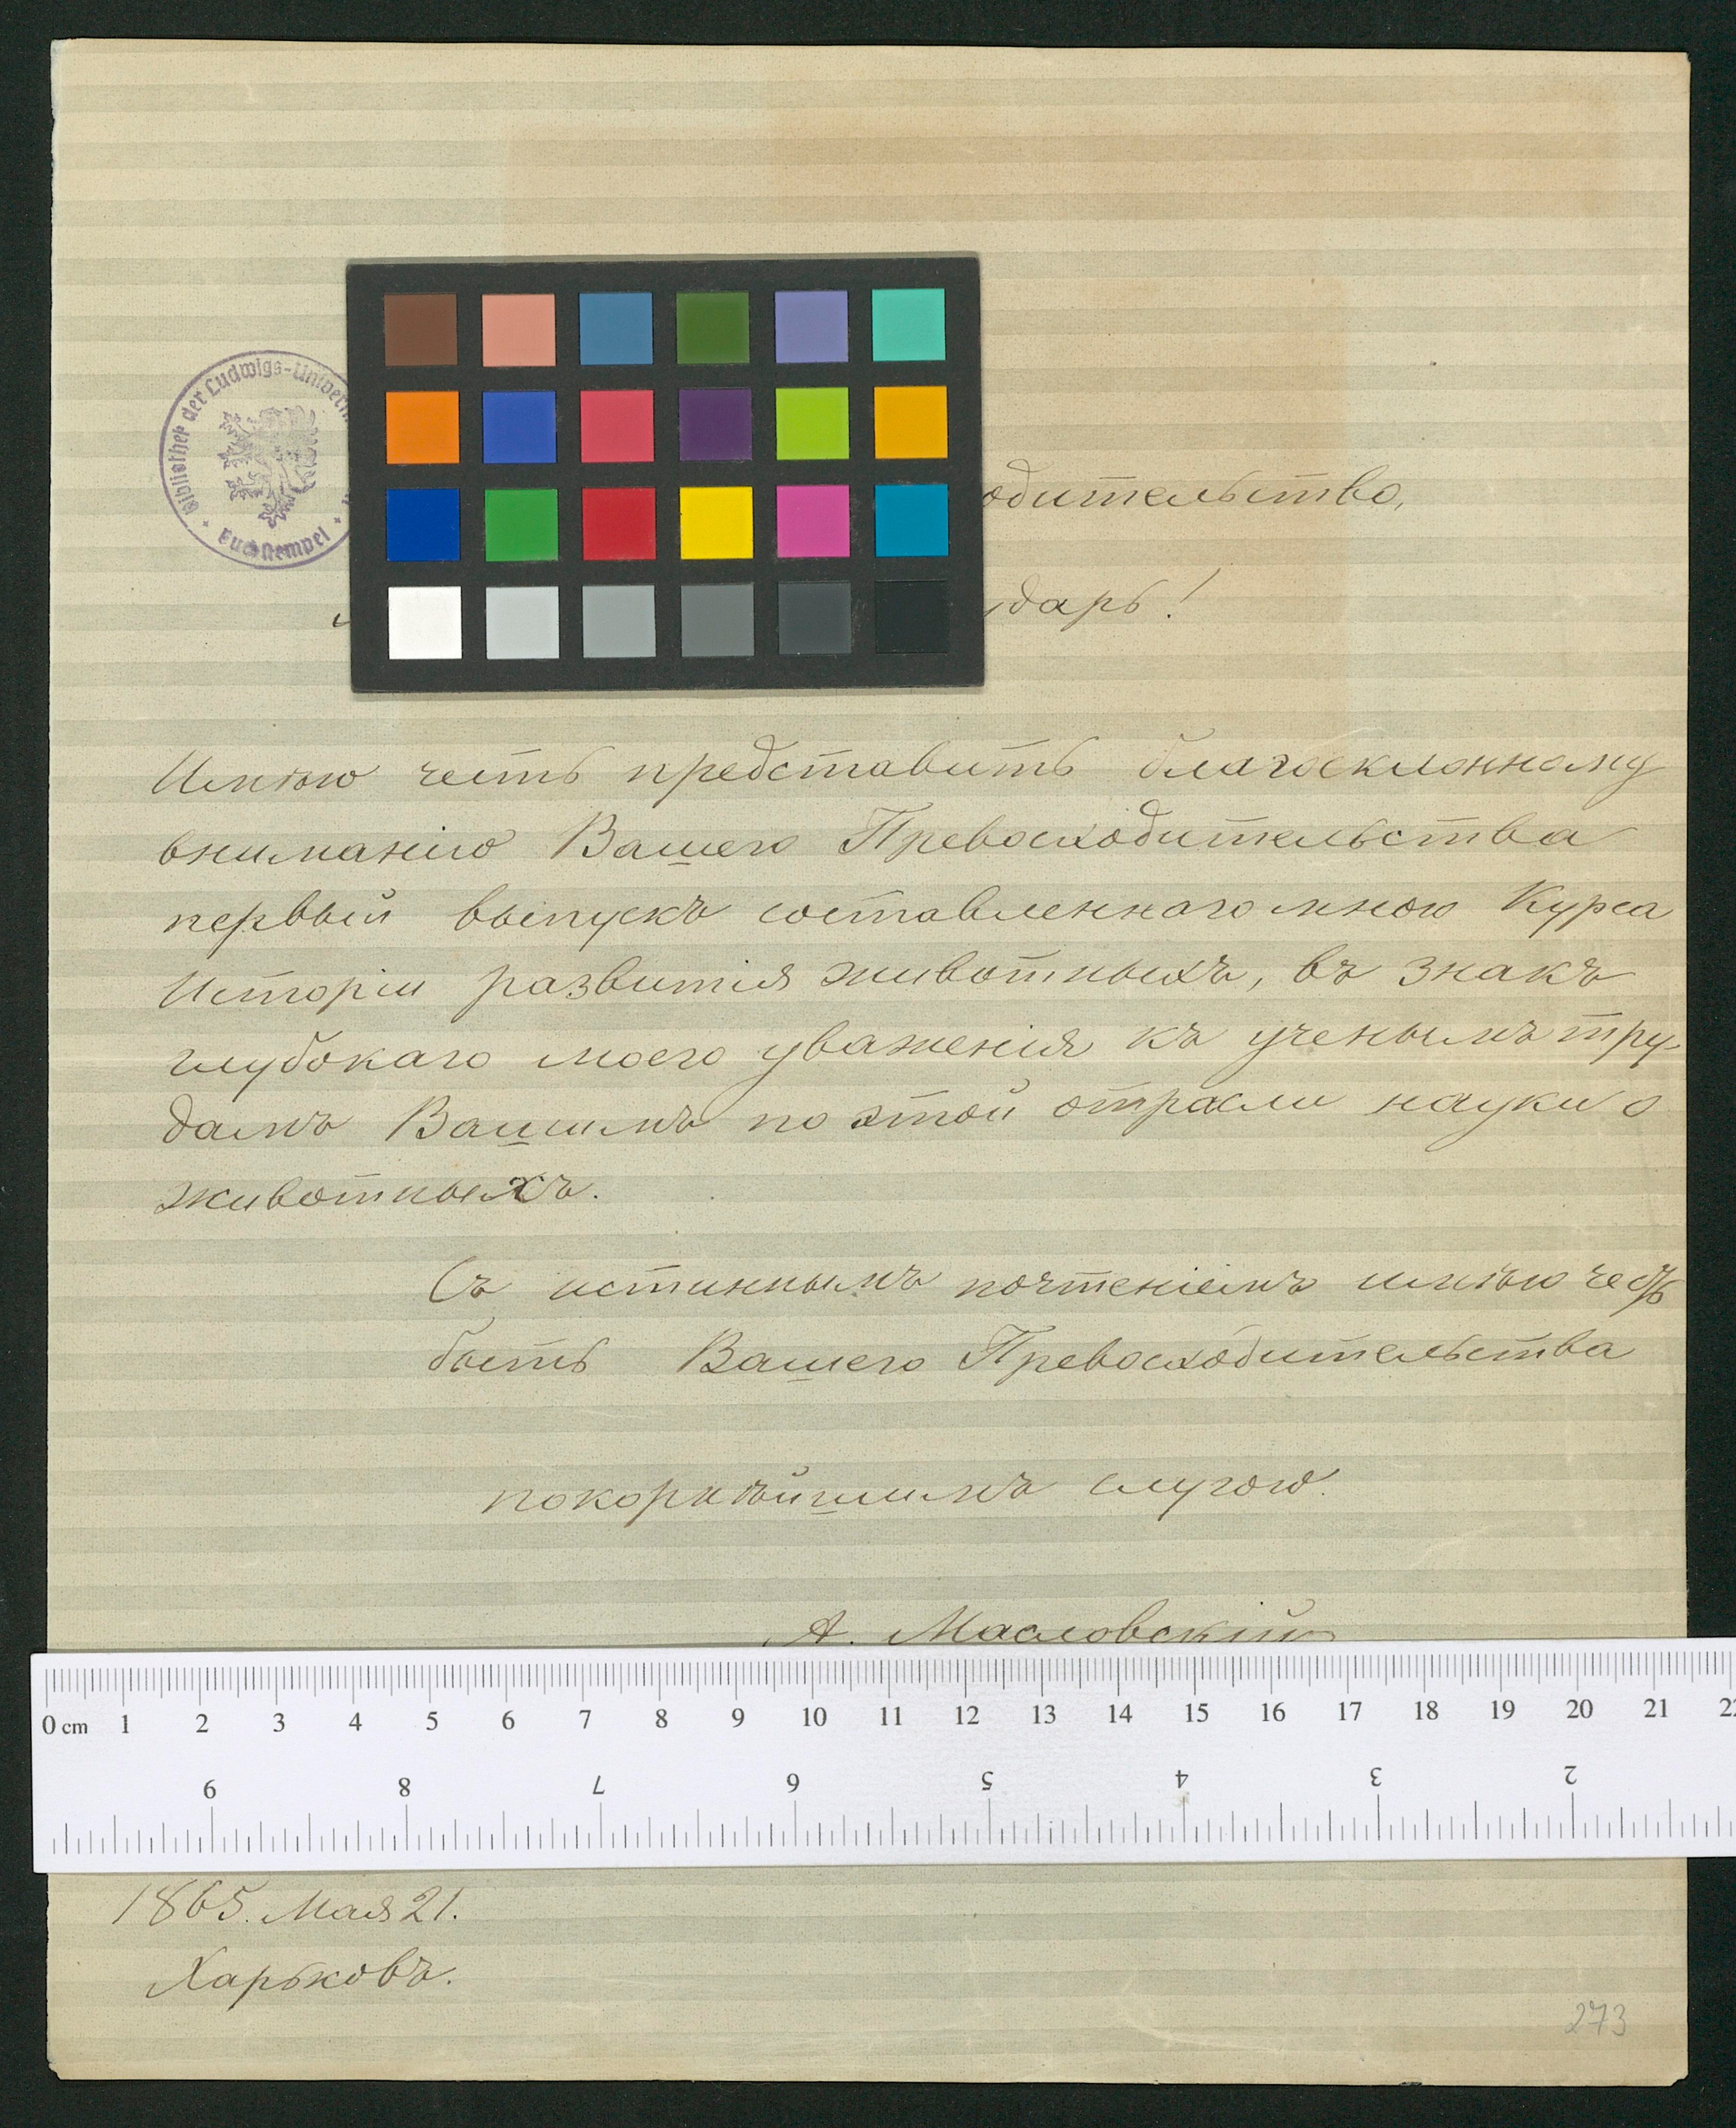 Bibliothek der Ludwigs-Univer
Buchstempel
одительство,
ударь!
Имѣю честь представить благосклонному
вниманію Вашего Превосходительства
первый выпускъ составленнаго мною Курса
Исторіи развитія животныхъ, въ знакъ
глубокаго моего уваженія къ ученымъ тру-
дамъ Вашимъ по этой отрасли науки о
животныхъ.
Съ истиннымъ почтеніемъ имѣю честь
быть Вашего Превосходительства
покорнѣйшимъ слугою.
А. Масловскій
0 cm 1 2 3 4 5 6 7 8 9 10 11 12 13 14 15 16 17 18 19 20 21 22
9 8 7 6 5 4 3 2
1865. Мая 21.
Харьковъ.
273